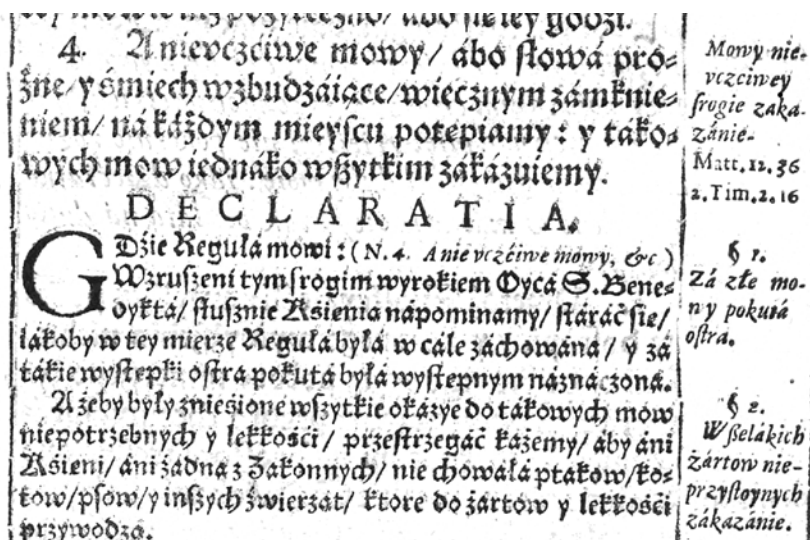 4. A nievczćiwe mowy/ ábo słowá pro=
żne/ y śmiech wzbudzáiące/ więcznym zámknie=
niem/ ná káżdym mieyscu potępiamy: y táko=
wych mow iednáko wszytkim zákázuiemy.
DECLARATIA.
GDżie Regułá mowi: (N. 4. A nie vczćiwe mowy, &c)
Wzruszeni tym srogim wyrokiem Oycá S. Bene=
dyktá/ słusznie Xsienia nápominamy/ stáráć sie/
iákoby w tey mierze Regułá byłá w cále záchowána/ y zá
tákie wystepki ostra pokutá byłá wystepnym náznáczoná.
A żeby były znieśione wszytkie okázye do tákowych mow
niepotrzebnych y lekkośći/ przestrzegáć każemy/ aby áni
Xsieni/ áni żadna z Zakonnych/ nie chowáłá ptakow/ ko=
tow/ psow/ y inszych źwierzat/ ktore do żártow y lekkośći
przywodzą.
Mowy nie-
vczciwey
srogie zaka-
zánie.
Matt. 12. 36
2. Tim. 2. 16
§ 1.
Zá złe mo-
wy pokutá
ostra.
§ 2.
Wszelákich
żártow nie-
przystoynych
zákazánie.